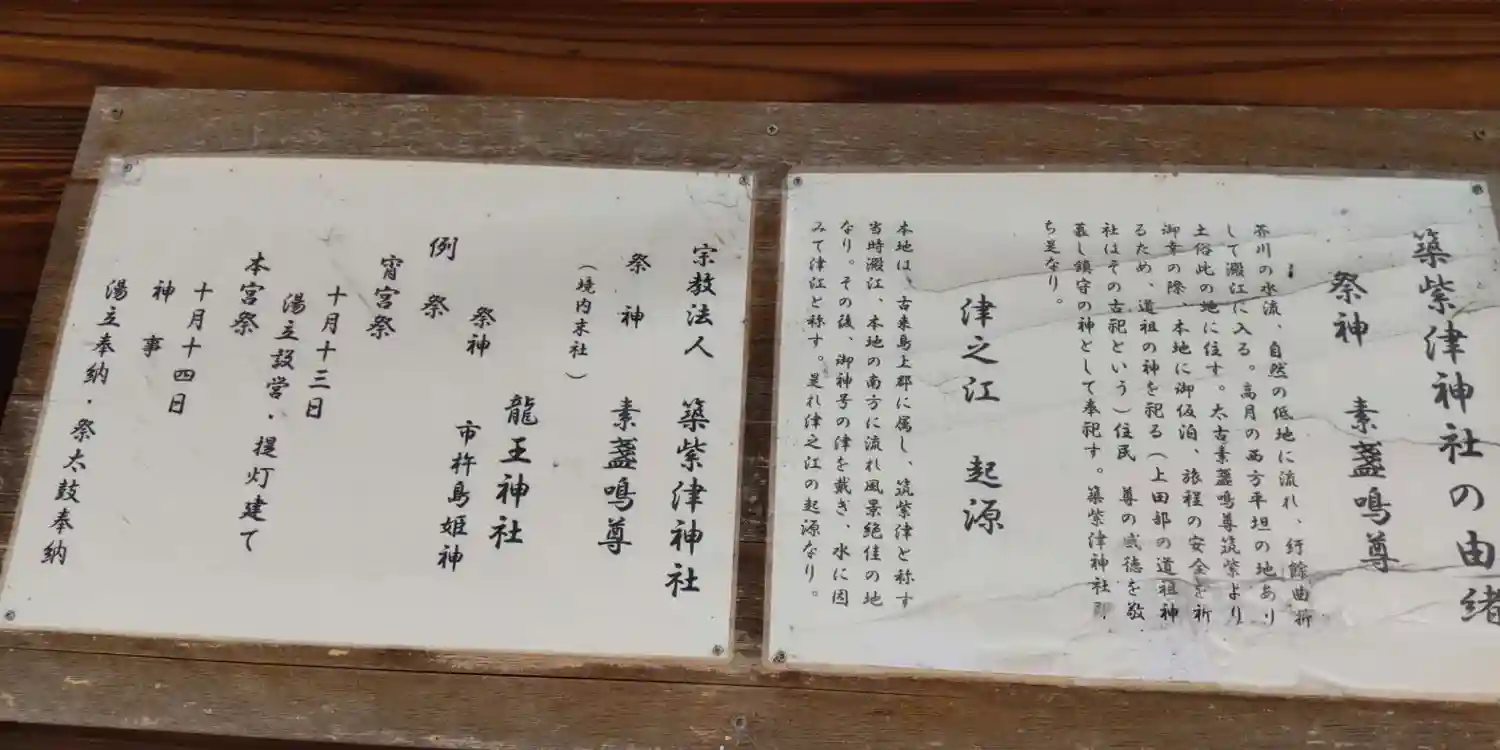 築紫津神社の由緒
祭神　素盞鳴尊
芥川の水流、自然の低地に流れ、紆餘曲折
して澱江に入る。高月の西方平坦の地あり
土俗此の地に住す。太古素盞鳴尊筑紫より
御幸の際、本地に御仮泊、旅程の安全を祈
るため、道祖の神を祀る（上田部の道祖神
社はその古祀という）住民　尊の威徳を敬
慕し鎮守の神として奉祀す。築紫津神社即
ち是なり。
津之江　起源
本地は、古来島上郡に属し、筑紫津と称す
当時澱江、本地の南方に流れ風景絶佳の地
なり。その後、御神号の津を戴き、水に因
みて津江と称す。是れ津之江の起源なり。
宗教法人　築紫津神社
祭神　素盞鳴尊
（境内末社）
龍王神社
祭神　市杵島姫神
例祭
宵宮祭
十月十三日
湯立設営・提灯建て
本宮祭
十月十四日
神事
湯立奉納・祭太鼓奉納